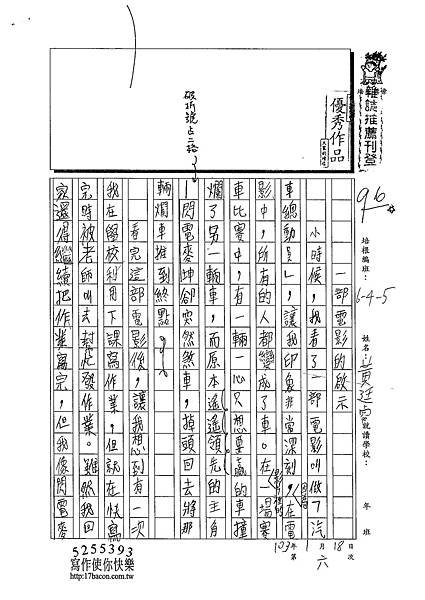 雜誌推薦刊登
優秀作品
96
培根編班：6-4-5
姓名
就讀學校：
年 班
破折號占二格
一部電影的啟示
小時候，我看了一部電影叫做「汽
車總動員」，讓我印象非常深刻，在電
影中，所有的人都變成了車。在一場賽
車比賽中，有一輛一心只想要贏的車撞
爛了另一輛車，而原本遙遙領先的主角
閃電麥坤卻突然煞車，掉頭回去將那
輛爛車推到終點。
看完這部電影後，讓我想到有一次
我在學校利用下課寫作業，但就在快寫
完時被老師叫去幫忙發作業。雖然我回
家還得繼續把作業寫完，但我像閃電麥
103年1月18日
第六次
5255393
寫作使你快樂
http:17bacon.com.tw